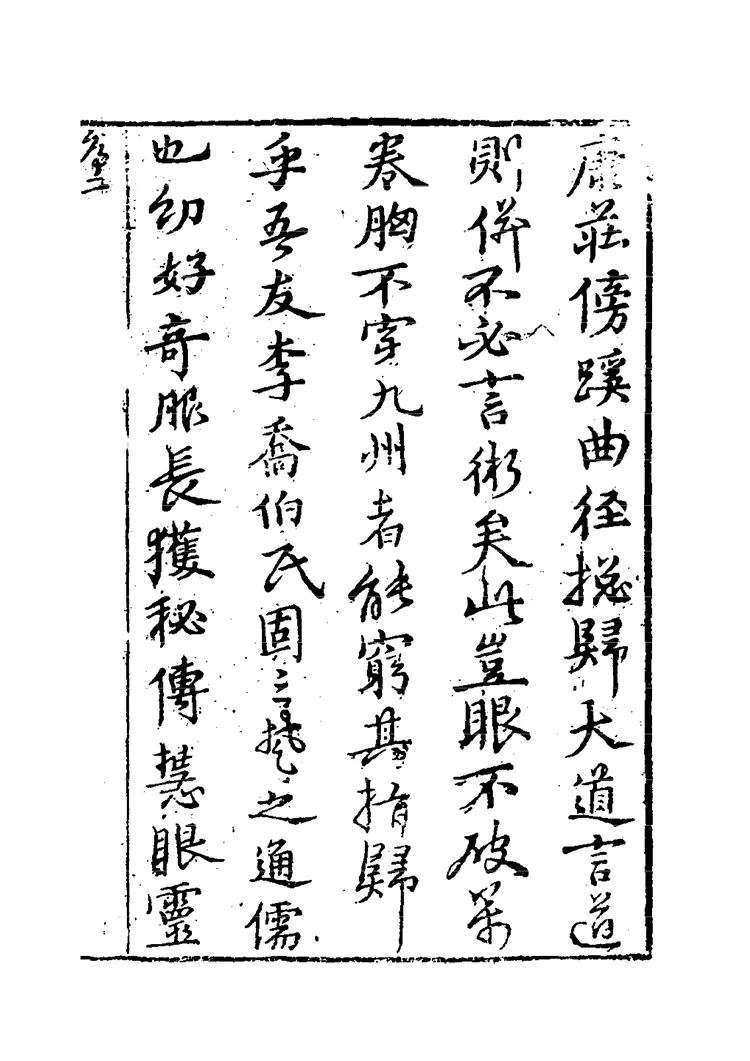 康莊傍蹊曲径捴歸大道言道
則併不必言術矣此豈眼不破萬
卷胸不穿九州者能窮其指歸
乎吾友李喬伯氏固三楚之通儒
也幼好奇服長獲秘傳慧眼靈
序二